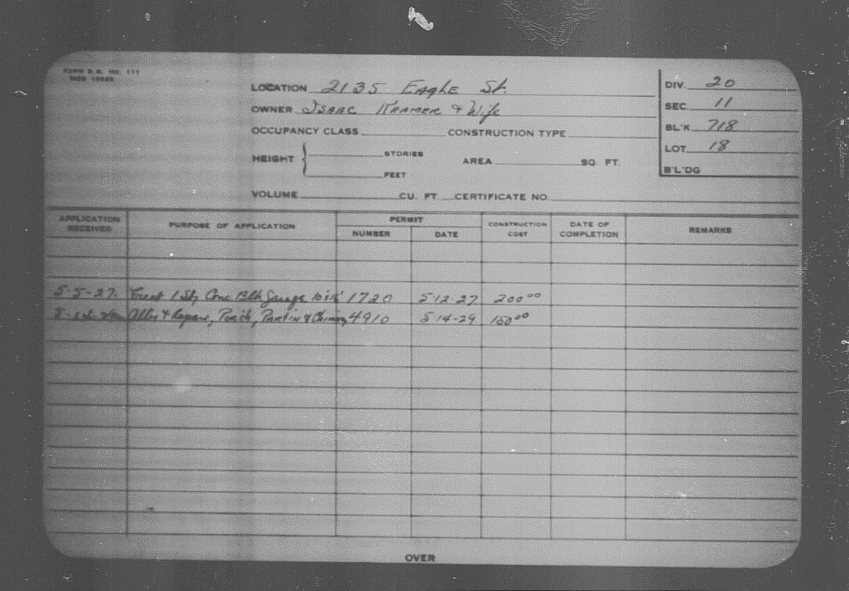 FORM B.B. NO. 111
LOCATION 2135 EAGLE St.
OWNER ISAAC KRAMER & Wife
OCCUPANCY CLASS CONSTRUCTION TYPE
HEIGHT { STORIES AREA SQ. FT.
FEET
VOLUME CU. FT. CERTIFICATE NO.
DIV. 20
SEC. 11
BL'K 718
LOT 18
B'L'DG
APPLICATION RECEIVED PURPOSE OF APPLICATION PERMIT NUMBER DATE CONSTRUCTION COST DATE OF COMPLETION REMARKS
5-5-27. Erect 1 Sty Conc. Blk Garage 1720 5-12-27 200 00
Alter & Repair, Porch, 4910 5-14-29 150 00
OVER